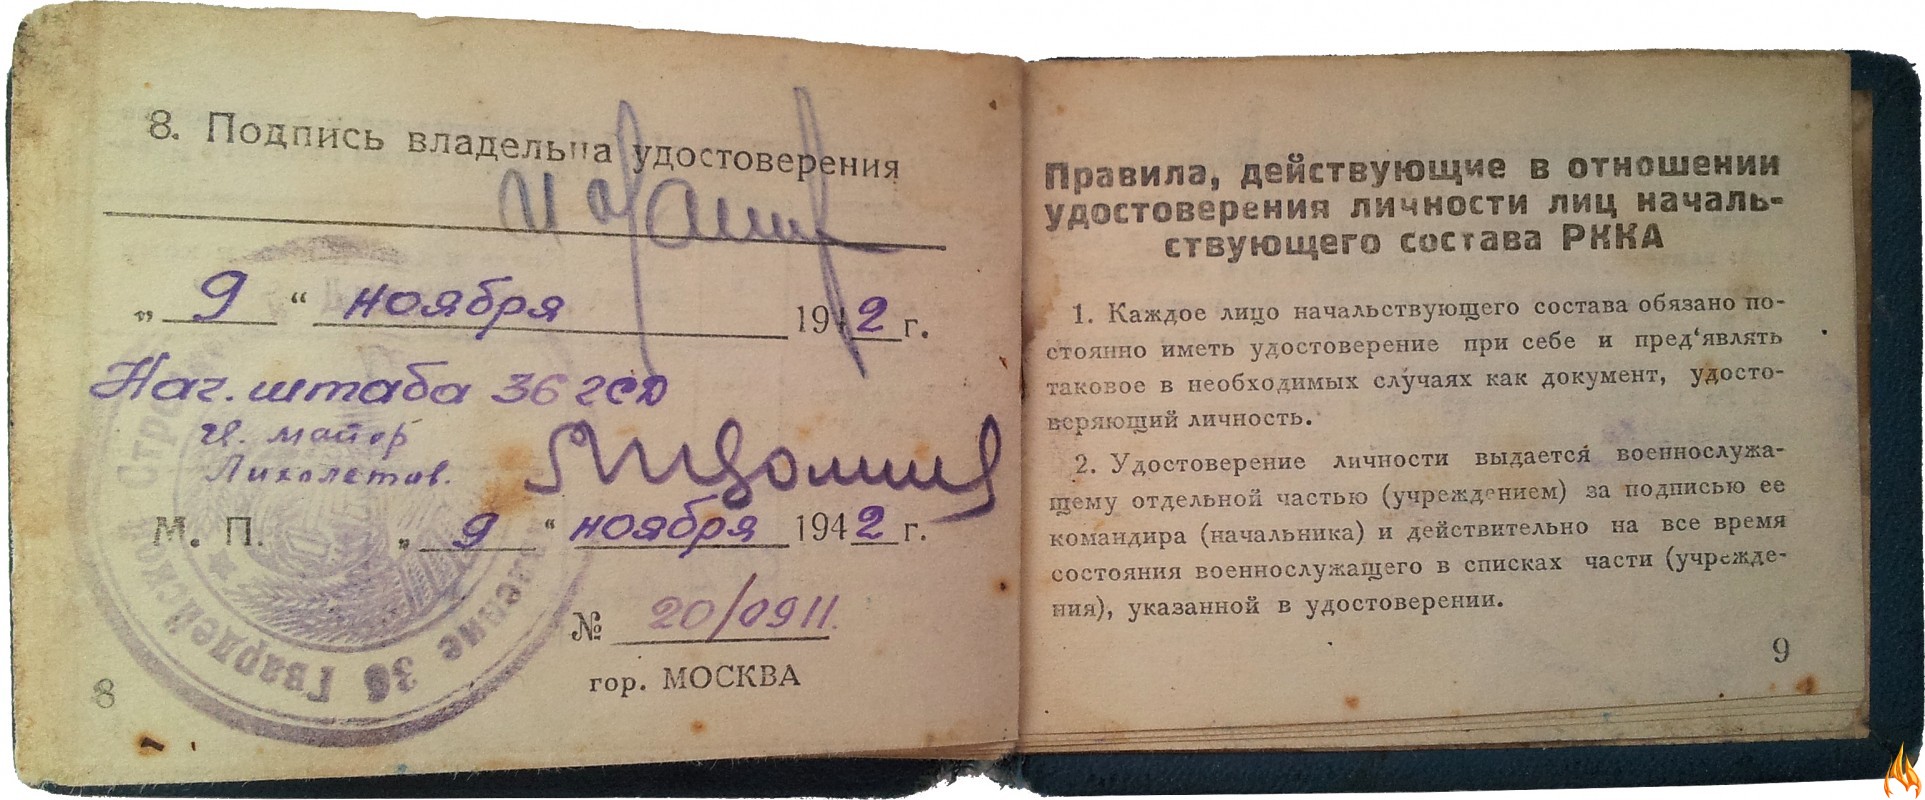 8. Подпись владельца удостоверения
„ 9 “ ноября 1942 г.
Нач. штаба 36 гсд
гв. майор
Лихолетов.
М. П. „ 9 “ ноября 1942 г.
№ 20/0911.
гор. МОСКВА
8
36 Гвардейской Стр
Правила, действующие в отношении
удостоверения личности лиц началь-
ствующего состава РККА
1. Каждое лицо начальствующего состава обязано по-
стоянно иметь удостоверение при себе и пред‘являть
таковое в необходимых случаях как документ, удосто-
веряющий личность.
2. Удостоверение личности выдается военнослужа-
щему отдельной частью (учреждением) за подписью ее
командира (начальника) и действительно на все время
состояния военнослужащего в списках части (учрежде-
ния), указанной в удостоверении.
9